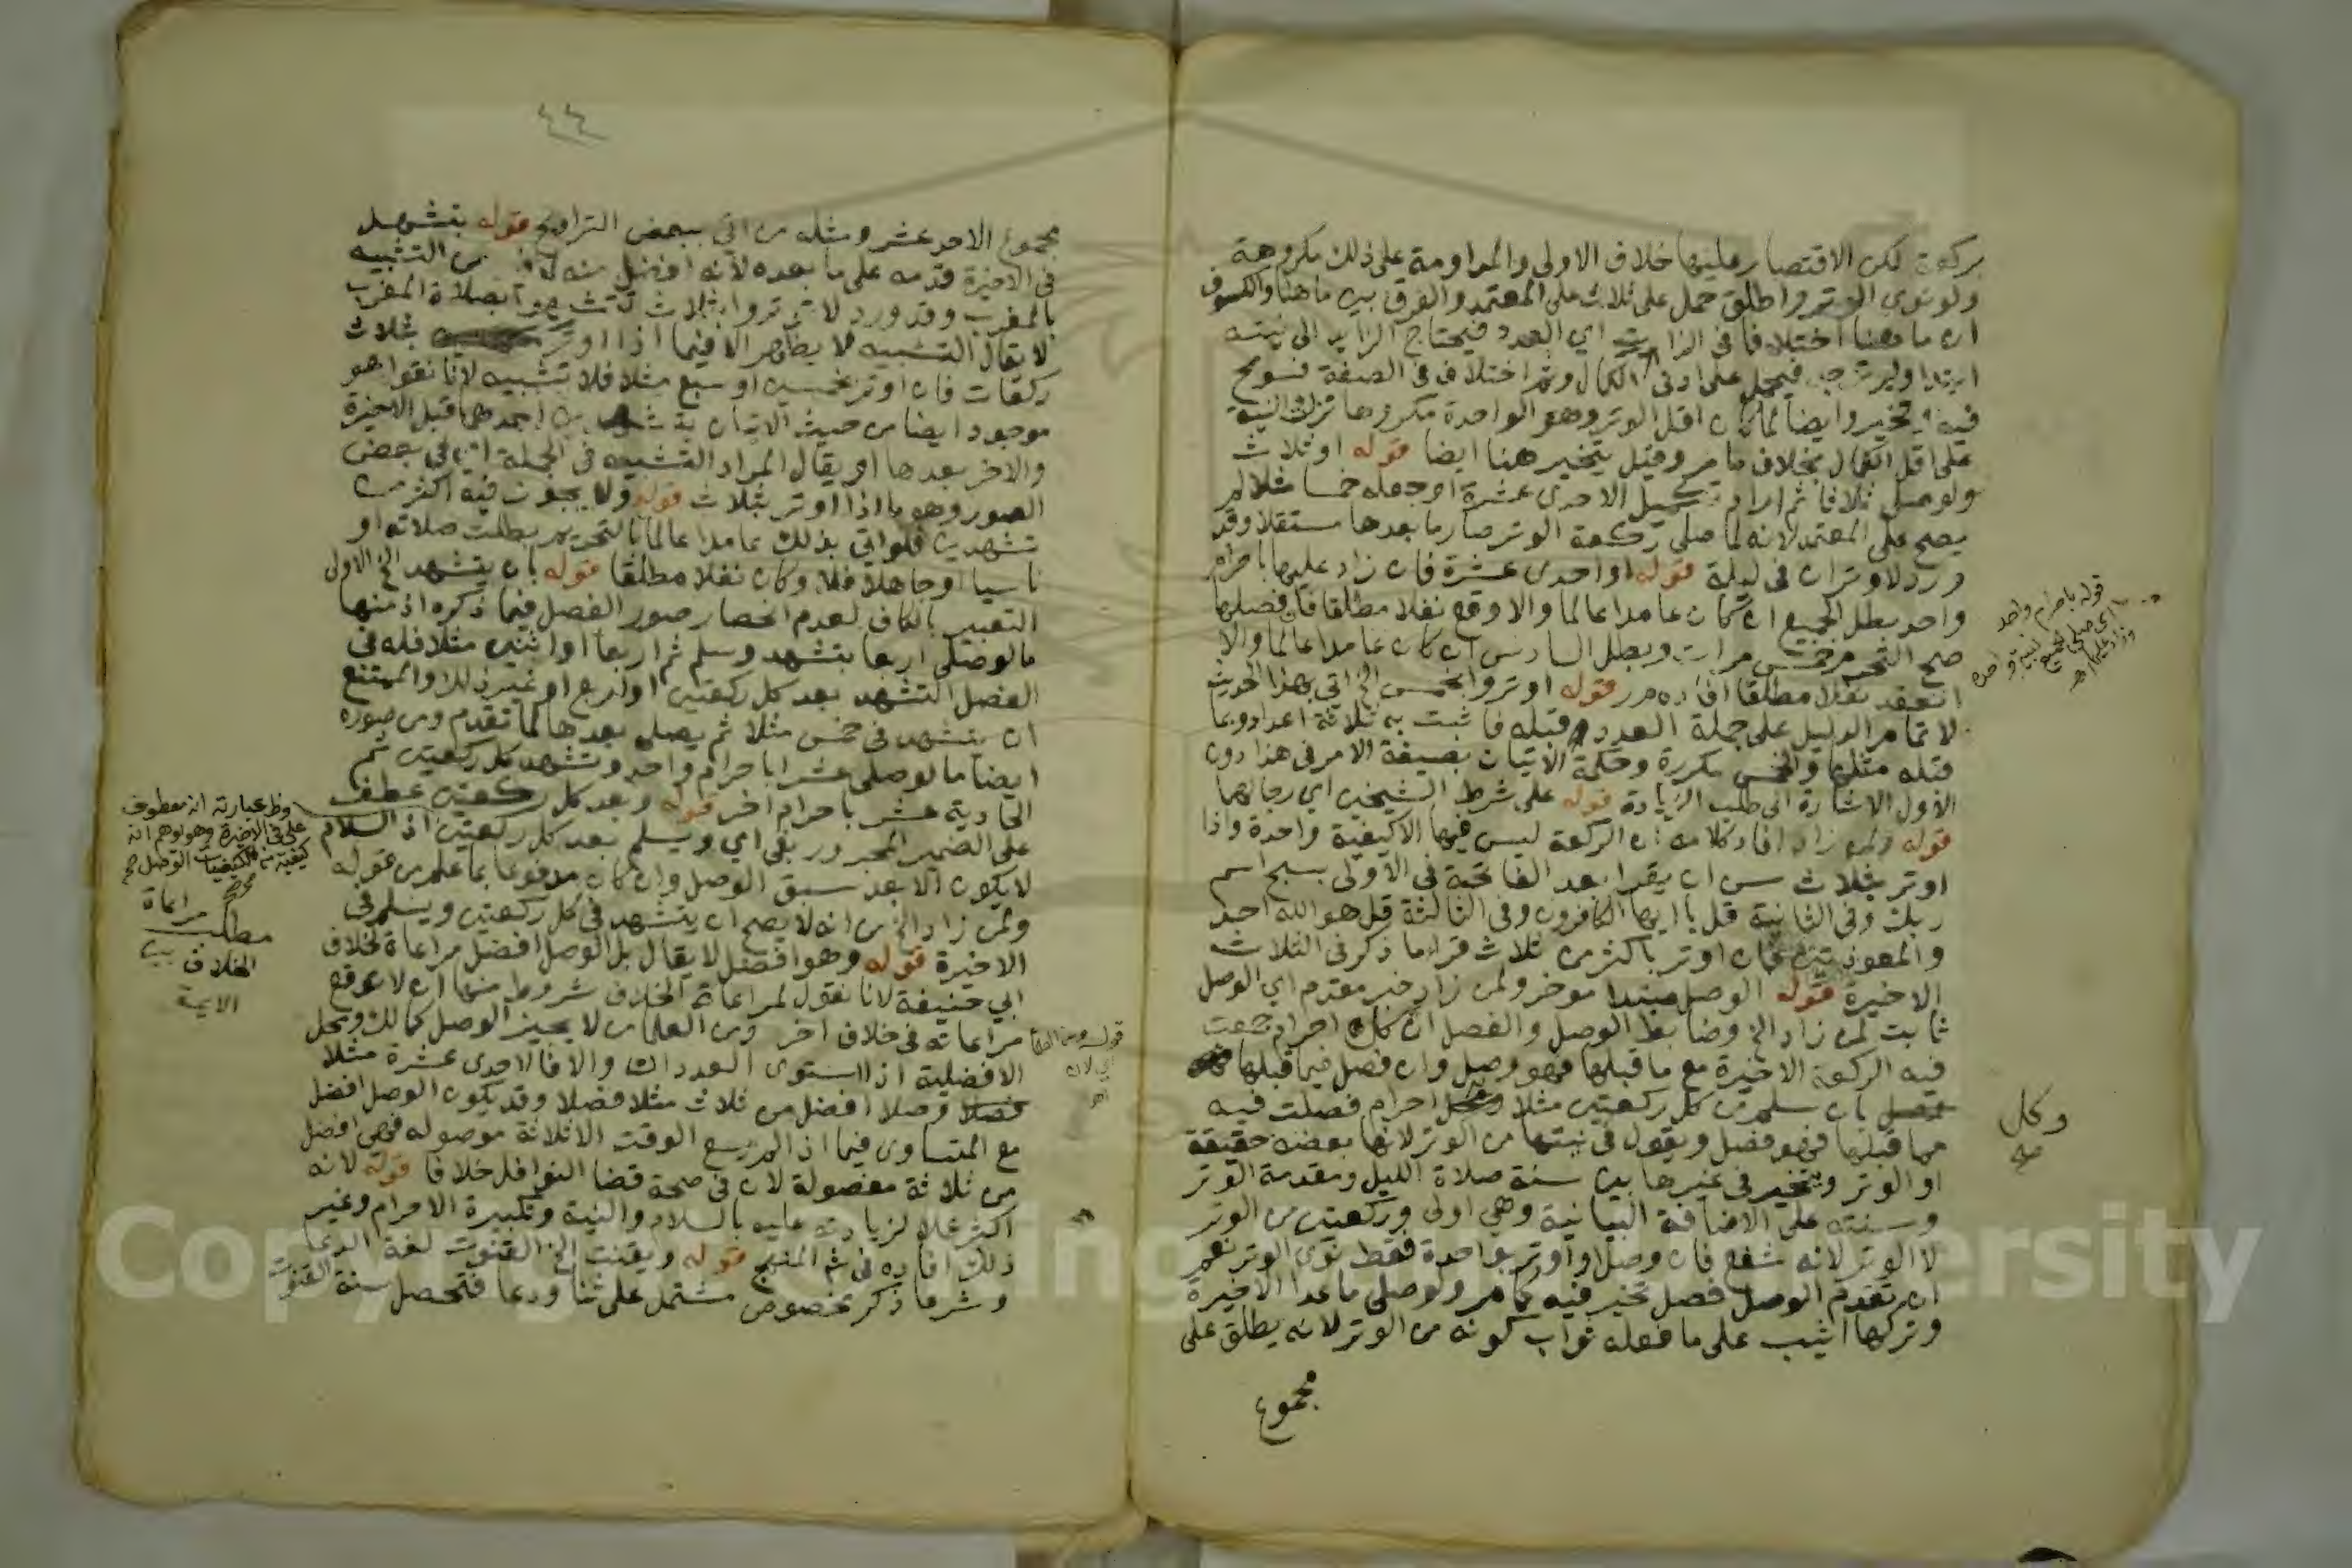 بركعة لكن الاقتصار عليها خلاف الاولى والمداومة على ذلك مكروهة
ولو نوى الوتر واطلق حمل على ثلاث على المعتمد والفرق بين ما هنا والكسوف
ان ما هنا اختلافا في الذات اي العدد فيحتاج الزايد الى نيته
ابتدا فيحمل على ادنى الكمال وثم اختلاف في الصفة فسومح
فيه وايضا لما كان اقل الوتر وهو الواحدة مكروها نزلت النية
على اقل الكمال بخلاف ما مر وقيل يتخير هنا ايضا قوله او ثلاث
ولو صلى ثلاثا ثم اراد تكميل الاحدى عشرة او جعله خمسا مثلا لم
يصح على المعتمد لانه لما صلى ركعة الوتر صار ما بعدها مستقلا وقد
ورد لا وتران في ليلة قوله او احدى عشرة فان زاد عليها باحرام
واحد بطل الجميع ان كان عامدا عالما والا وقع نفلا مطلقا فان فصلها
صح التحرم خمس مرات وبطل السادس ان كان عامدا عالما والا
انعقد نفلا مطلقا افاده م ر قوله اوتروا بخمس الخ اتي بهذا الحديث
لا تمام الدليل على جملة العدد قبله فما ثبت به ثلاثة اعداد وبما
قبله مثلها والخمس مكررة وحكمة الاتيان بصيغة الامر في هذا دون
الاول الاشارة الى طلب الزيادة قوله على شرط الشيخين اي رجالهما
قوله ولمن زاد افاد كلامه ان الركعة ليس فيها الا كيفية واحدة واذا
اوتر بثلاث سن ان يقرا بعد الفاتحة في الاولى بسبح اسم
ربك وفي الثانية قل يا ايها الكافرون وفي الثالثة قل هو الله احد
والمعوذتين فان اوتر باكثر من ثلاث قرا ما ذكر في الثلاث
الاخيرة قوله الوصل مبتدا موخر ولمن زاد خبر مقدم اي الوصل
ثابت لمن زاد الخ وضابط الوصل والفصل ان كل احرام جمعت
فيه الركعة الاخيرة مع ما قبلها فهو وصل وان فصل فيما قبلها
بان سلم من كل ركعتين مثلا وكل احرام فصلت فيه
مما قبلها فهو فصل ويقول في نيتها من الوتر لانها بعضه حقيقة
او الوتر ويتخير في غيرها بين سنة صلاة الليل ومقدمة الوتر
وسنته على الاضافة البيانية وهي اولى وركعتين من الوتر
لا الوتر لانه شفع فان وصل او اوتر بواحدة فقط نوى الوتر نعم
ان تقدم الوصل فصل تخير فيه كما مر ولو صلى ما عدا الاخيرة
وتركها اثيب على ما فعله ثواب كونه من الوتر لانه يطلق على
مجموع
قوله باحرام واحد
اي صلى الجميع بنية واحدة
وزاد عليها اه
وكل
صح
٤٤
مجموع الاحد عشر ومثله من اتي ببعض التراويح قوله بتشهد
في الاخيرة قدمه على ما بعده لانه افضل منه من التشبيه
بالمغرب وقد ورد لا توتروا بثلاث تشبهوا بصلاة المغرب
لا يقال التشبيه لا يظهر الا فيما اذا اوتر بثلاث
ركعات فان اوتر بخمس او سبع مثلا فلا تشبيه لانا نقول هو
موجود ايضا من حيث الاتيان بتشهدين احدهما قبل الاخيرة
والاخر بعدها او يقال المراد التشبيه في الجملة اي في بعض
الصور وهو ما اذا اوتر بثلاث قوله ولا يجوز فيه اكثر من
تشهدين فلو اتي بذلك عامدا عالما بالتحريم بطلت صلاته او
ناسيا او جاهلا فلا وكان نفلا مطلقا قوله بان يتشهد الخ الاولى
التعبير بالكاف لعدم انحصار صور الفصل فيما ذكره اذ منها
ما لو صلى اربعا بتشهد وسلم ثم اربعا او اثنين مثلا فله في
الفصل التشهد بعد كل ركعتين او اربع او غير ذلك والممتنع
ان يتشهد في خمس مثلا ثم يصلى بعدها لما تقدم ومن صوره
ايضا ما لو صلى عشرا باحرام واحد وتشهد كل ركعتين ثم
الحادية عشر باحرام اخر قوله وبعد كل ركعتين عطف
على الضمير المجرور بفي اي ويسلم بعد كل ركعتين اذ السلام
لا يكون الا بعد سبق الوصل وان كان مدفوعا بما علم من قوله
ولمن زاد الخ من انه لا يصح ان يتشهد في كل ركعتين ويسلم في
الاخيرة قوله وهو افضل لا يقال بل الوصل افضل مراعاة لخلاف
ابي حنيفة لانا نقول لمراعاة الخلاف شروط منها ان لا يوقع
مراعاته في خلاف اخر ومن العلما من لا يجيز الوصل كمالك ومحل
الافضلية اذا استوى العددان والا فالاحدى عشرة مثلا
وصلا افضل من ثلاث مثلا فصلا وقد يكون الوصل افضل
مع المتساوى فيما اذا لم يسع الوقت الا ثلاثة موصوله فهي افضل
من ثلاثة مفصولة لان في صحة قضا النوافل خلافا قوله لانه
اكثر عملا لزيادته عليه بالسلام والنية وتكبيرة الاحرام وغير
ذلك افاده في شم المنهج قوله ويقنت الخ القنوت لغة الدعا
وشرعا ذكر مخصوص مشتمل على ثنا ودعا فتحصل سنة القنوت
وظ عبارته انه معطوف
على في الاخيرة وهو يوهم انه
كيفية من كيفيات الوصل صح
مطلب مراعاة
الخلاف بين
الايمة
قوله ومن العلما
اي لان
Copyright © King Saud University